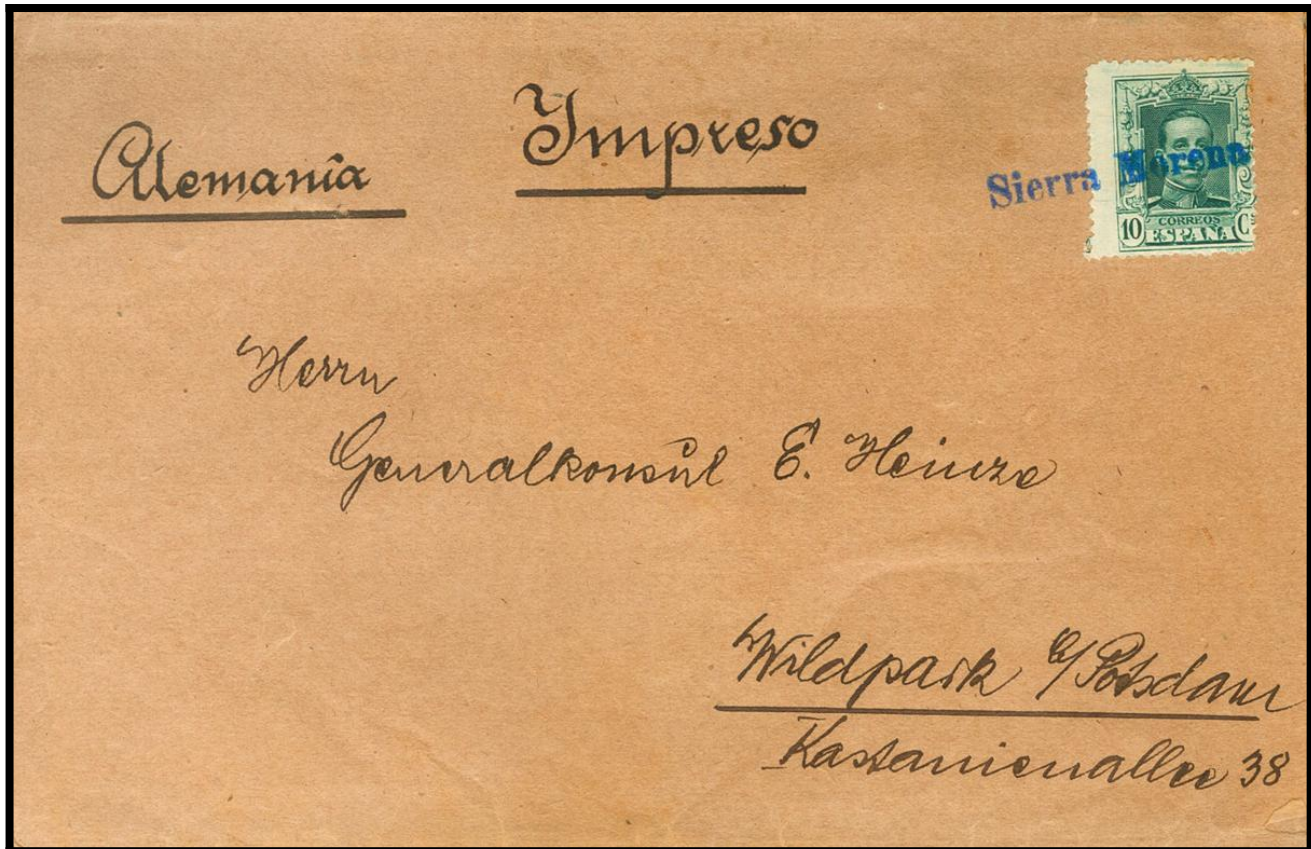 Alemania
Impreso
Sierra Morena
10 CORREOS C
ESPAÑA
Herrn
Generalkonsul E. Heinze
Wildpark b/Potsdam
Kastanienallee 38